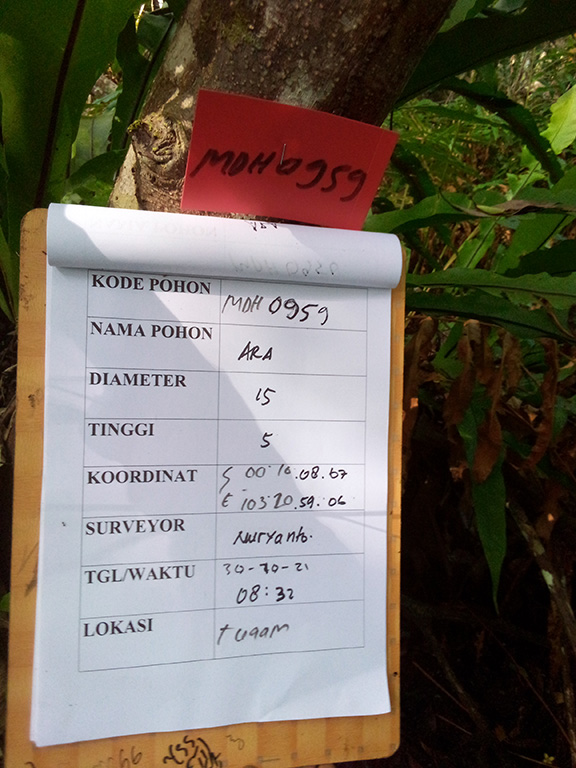 MDH 0959
KODE POHON MDH 0959
NAMA POHON ARA
DIAMETER 15
TINGGI 5
KOORDINAT S 00.10.08.67
E 103.20.59.06
SURVEYOR Nuryanto.
TGL/WAKTU 30-10-21
08:32
LOKASI tugam